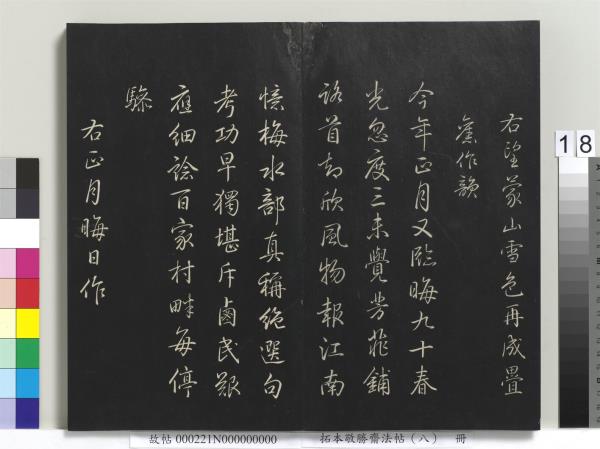 右望蒙山雪色再成疊
舊作韻
今年正月又臨晦九十春
光忽度三未覺芳菲鋪
路首却欣風物報江南
憶梅水部真稱絕選句
考功早獨堪斥鹵民艱
應細諗百家村畔每停
驂
右正月晦日作
18
故帖 000221N000000000
拓本敬勝齋法帖（八） 冊